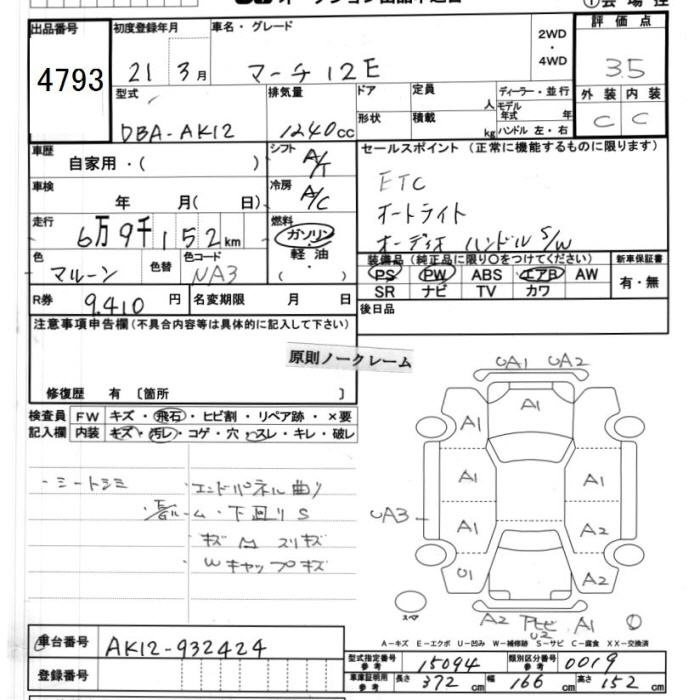 出品番号 初度登録年月 車名・グレード 2WD・4WD 評価点
4793 21 3月 マーチ 12E 3.5
型式 排気量 ドア 定員 人 ディーラー・並行 外装 内装
DBA-AK12 1240cc 形状 積載 kg モデル年式 年 ハンドル 左・右 C C
車歴 自家用・( ) シフト A/T セールスポイント (正常に機能するものに限ります)
車検 年 月( 日) 冷房 A/C ETC
オートライト
走行 6万9千152km 燃料 ガソリン 軽油・( ) オーディオ ハンドルS/W
色 マルーン 色替 色コード NA3 装備品 (純正品に限り○をつけてください) 新車保証書
PS PW ABS エアB AW 有・無
SR ナビ TV カワ
R券 9,410円 名変期限 月 日 後日品
注意事項申告欄 (不具合内容等は具体的に記入して下さい)
原則ノークレーム
修復歴 有〔箇所 〕
検査員 FW キズ・飛石・ヒビ割・リペア跡・×要
記入欄 内装 キズ・汚レ・コゲ・穴・スレ・キレ・破レ
・シートシミ ・エンドパネル曲り
・下回りS
キズ スリキズ
Wキャップキズ
UA1 UA2
A1
A1
A1 A1
UA3 A1 A2
U1 A2
スペア
A2 U2 A1
A-キズ E-エクボ U-凹み W-補修跡 S-サビ C-腐食 XX-交換済
車台番号 AK12-932424
型式指定番号 参考 15094 類別区分番号 参考 0019
登録番号 車庫証明用 参考 長さ 372cm 幅 166cm 高さ 152cm